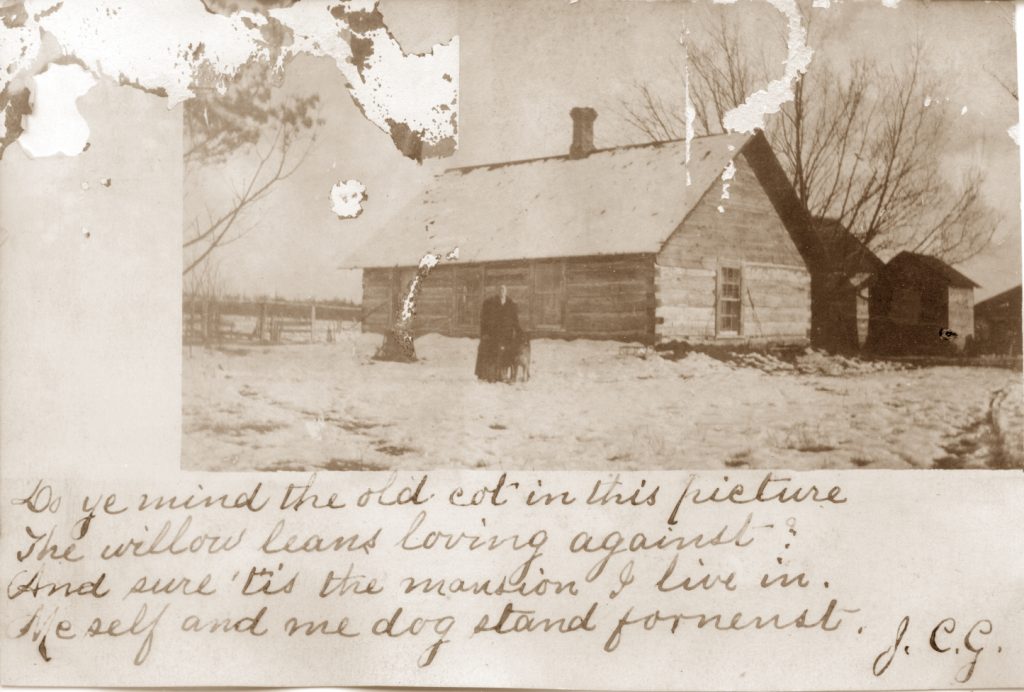 Do ye mind the old cot in this picture
The willow leans loving against?
And sure 'tis the mansion I live in.
Me self and me dog stand fornenst.
J. C. G.